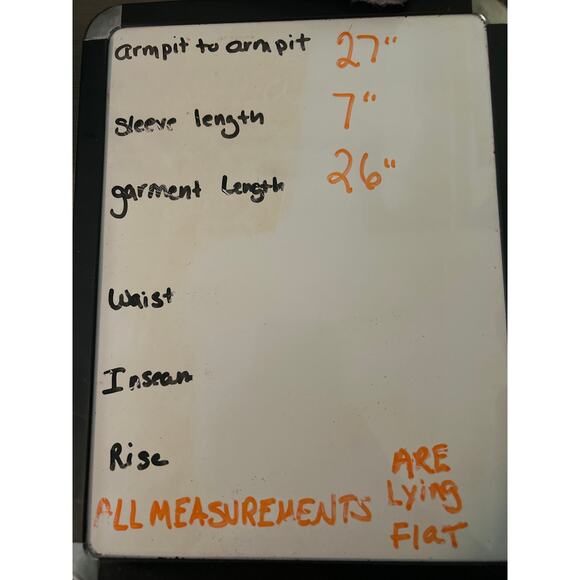 armpit to armpit 27"
sleeve length 7"
garment Length 26"
Waist
Inseam
Rise
ALL MEASUREMENTS ARE
Lying
FlaT